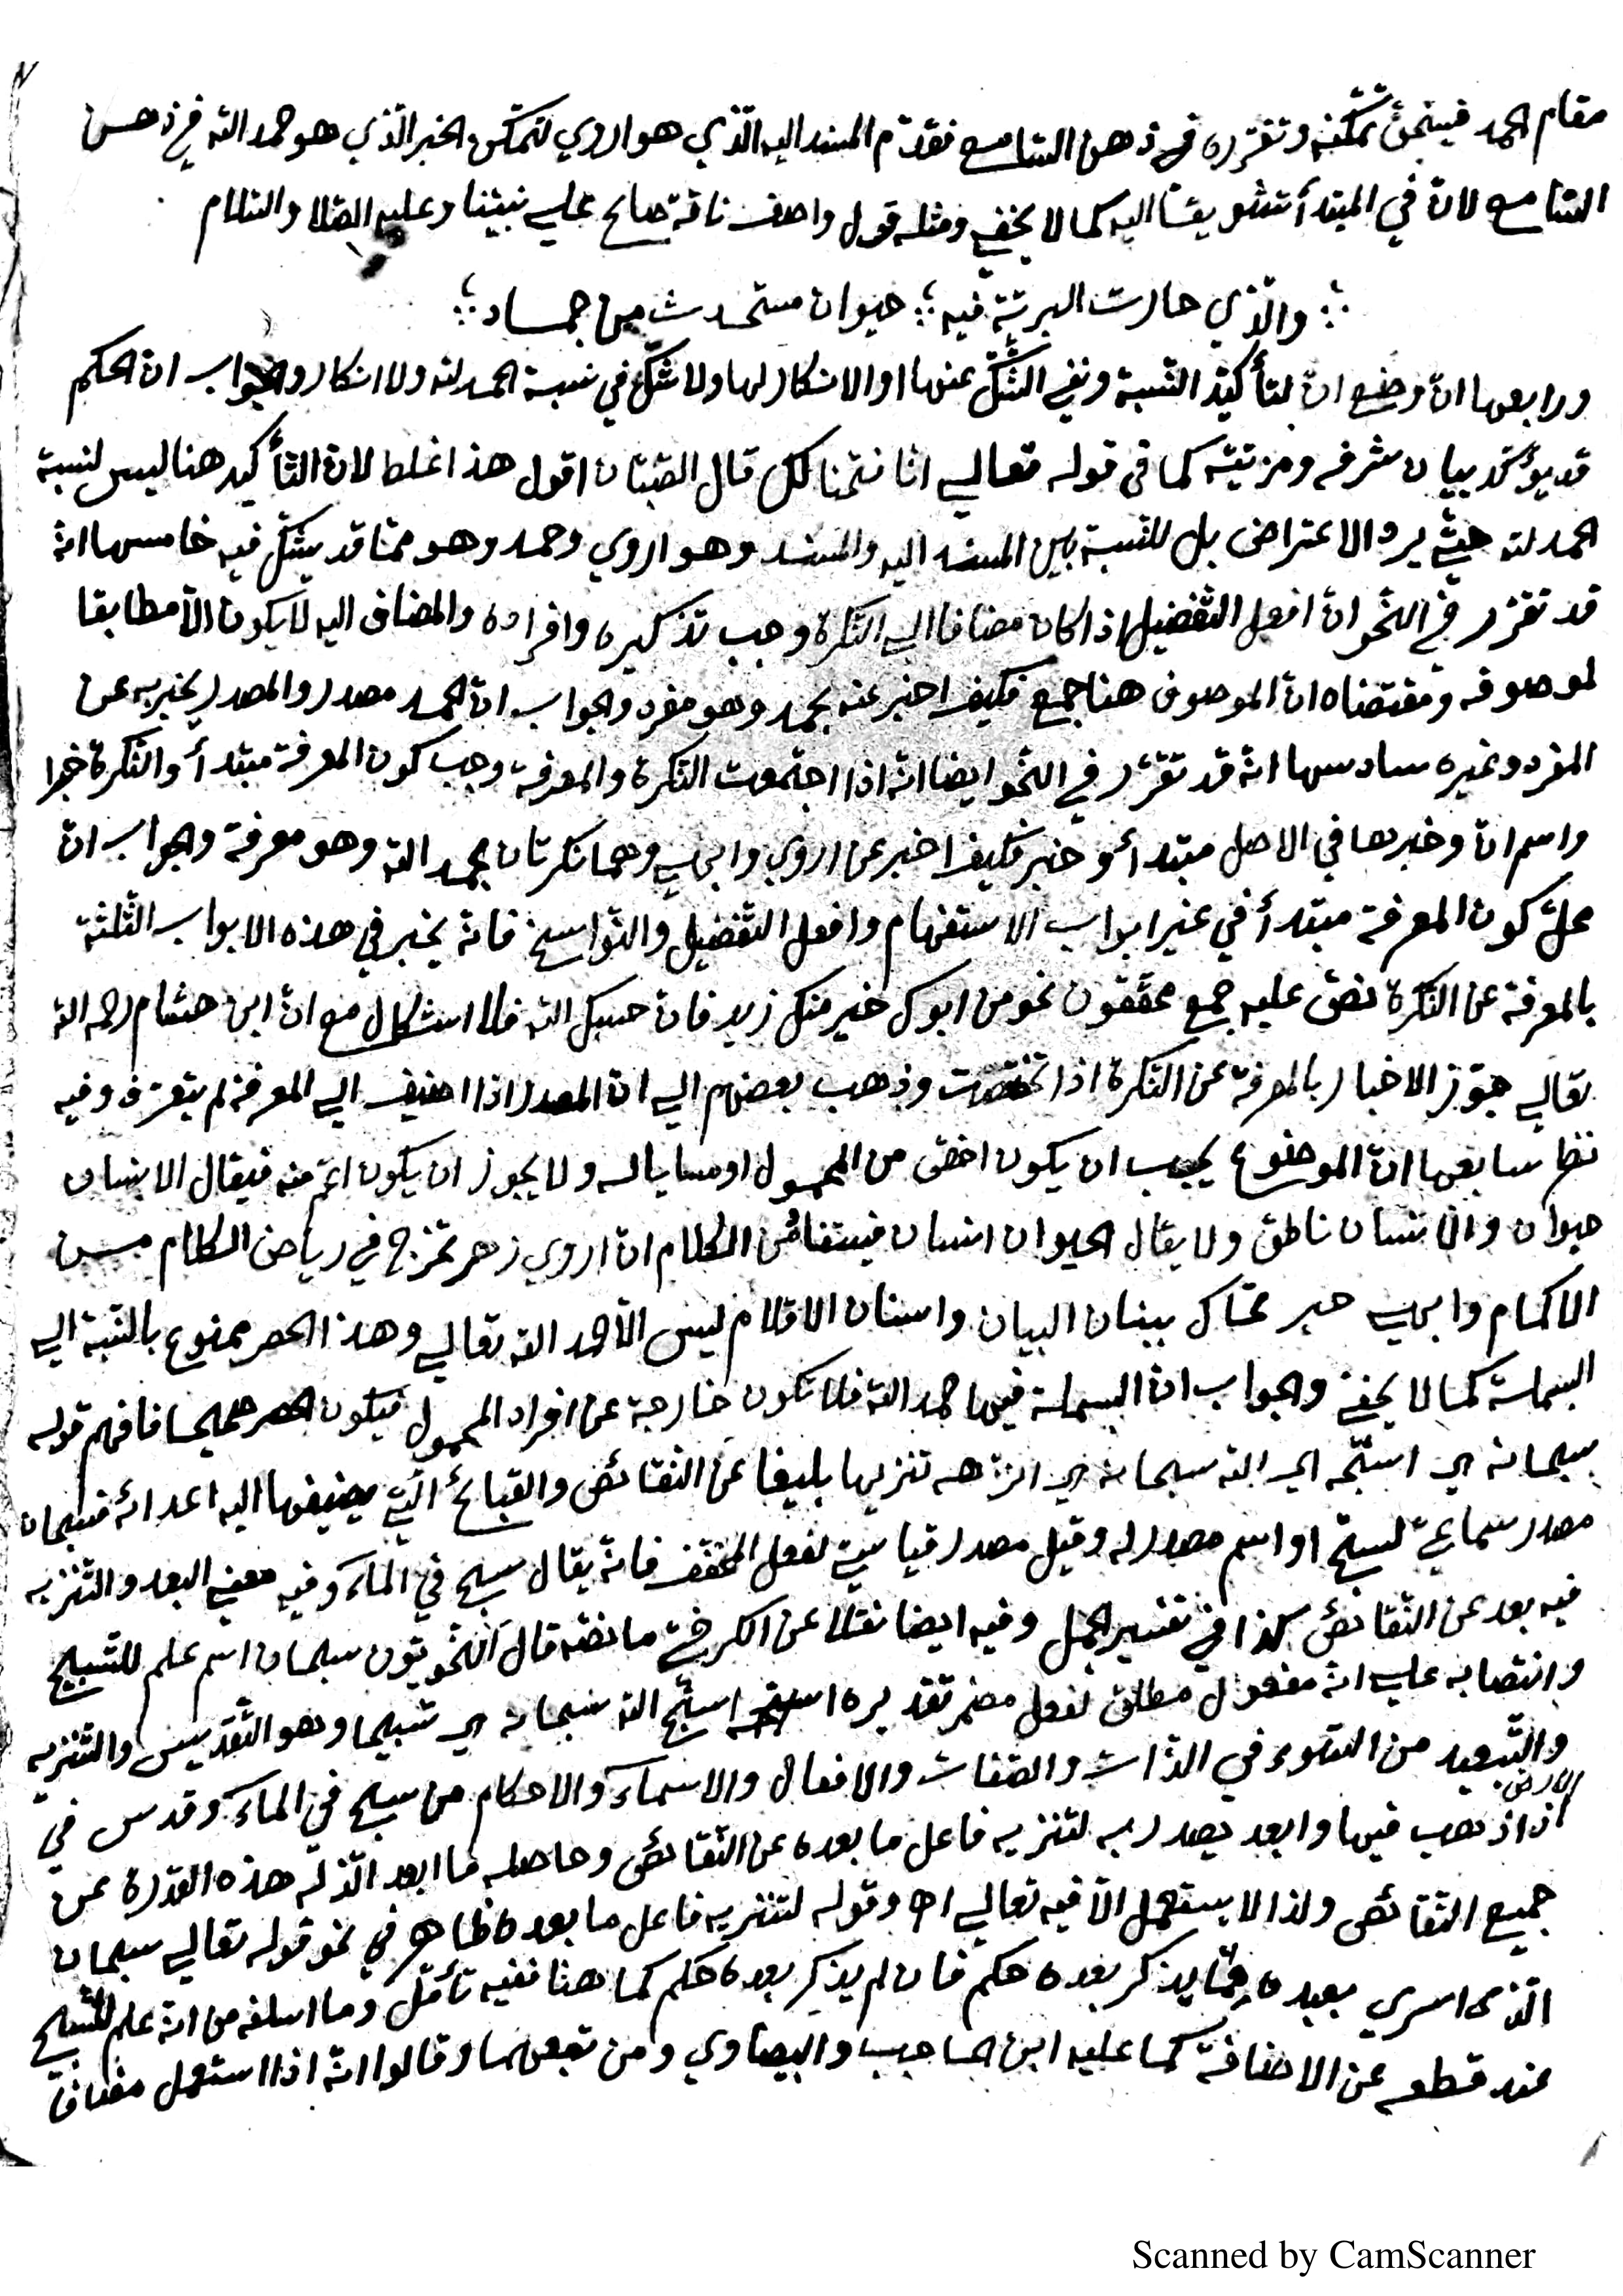 مقام الحمد فينبغي تمكّنه وتقرّره في ذهن السّامع فقدّم المسند اليه الّذي هو اروي لتمكّن الخبر الّذي هو حمد اللّه في ذهن
السّامع لانّ في المبتدأ تشويقا اليه كما لا يخفي ومثله قول واصف ناقة صالح علي نبيّنا وعليه الصّلا والسّلام
والّذي حارت البريّة فيه ؛ حيوان مستحدث من جماد ؛
ورابعها انّ وضع انّ لتأكيد النّسبة ونفي الشّكّ عنها او الانكار لها ولا شكّ في نسبة الحمد للّه ولا انكار والجواب انّ الحكم
قد يؤكّد ببيان شرفه ومزيّته كما في قوله تعالي انا فتحنا لك قال الصّبّان اقول هذا غلط لانّ التّأكيد هنا ليس لنسبة
الحمد للّه حيث يرد الاعتراض بل للنّسبة بين المسند اليه والمسند وهو اروي وحمد وهو ممّا قد يشكّ فيه خامسها انّه
قد تقرّر في النّحو انّ افعل التّفضيل اذا كان مضافا الي النّكرة وجب تذكيره وافراده والمضاف اليه لا يكون الّا مطابقا
لموصوفه ومقتضاه انّ الموصوف هنا جمع فكيف اخبر عنه بحمد وهو مفرد والجواب انّ الحمد مصدر والمصدر يخبر به عن
المفرد وغيره سادسها انّه قد تقرّر في النّحو ايضا انّه اذا اجتمعت النّكرة والمعرفة وجب كون المعرفة مبتدأ والنّكرة خبرا
واسم انّ وخبرها في الاصل مبتدأ وخبر فكيف اخبر عن اروي وابهي وهما نكرتان بحمد اللّه وهو معرفة والجواب انّ
محلّ كون المعرفة مبتدأ في غير ابواب الاستفهام وافعل التّفضيل والنّواسخ فانّه يخبر في هذه الابواب الثّلثة
بالمعرفة عن النّكرة نصّ عليه جمع محقّقون نحو من ابوك خير منك زيد فانّ حسبك اللّه فلا اشكال مع انّ ابن هشام رحمه اللّه
تعالي جوّز الاخبار بالمعرفة عن النّكرة اذا تخصّصت وذهب بعضهم الي انّ المصدر اذا اضيف الي المعرفة لم يتعرّف وفيه
نظر سابعها انّ الموضوع يجب ان يكون اخصّ من المحمول او مساويا له ولا يجوز ان يكون اعمّ منه فيقال الانسان
حيوان والانسان ناطق ولا يقال الحيوان انسان فيستفاد من الكلام انّ اروي زهر تخرّج في رياض الكلام من
الاكمام وابهي حبر تحاك ببنان البيان واسنان الاقلام ليس الّا حمد اللّه تعالي وهذا الحصر ممنوع بالنّسبة الي
البسملة كما لا يخفي والجواب انّ البسملة فيها حمد اللّه فلا تكون خارجة عن افراد المحمول فيكون الحصر صحيحا فافهم قوله
سبحانه اي اسبّحه اي اللّه سبحانه اي انزّهه تنزيها بليغا عن النّقائص والقبائح الّتي يضيفها اليه اعدائه فسبحان
مصدر سماعيّ لسبّح او اسم مصدر له وقيل مصدر قياسيّ لفعل المخفّف فانّه يقال سبح في الماء وفيه معني البعد والتّنزيه
فيه بعد عن النّقائص كذا في تفسير الجمل وفيه ايضا نقلا عن الكرخيّ ما نصّه قال النّحويّون سبحان اسم علم للتّسبيح
وانتصابه علي انّه مفعول مطلق لفعل مضمر تقديره اسبّح اللّه سبحانه اي تسبيحا وهو التّقديس والتّنزيه
والتّبعيد من السّوء في الذّات والصّفات والافعال والاسماء والاحكام من سبح في الماء وقدس في
الارض
اذا ذهب فيها وابعد يصدر به لتنزيه فاعل ما بعده عن النّقائص وحاصله ما ابعد الّذ له هذه القدرة عن
جميع النّقائص ولذا لا يستعمل الّا فيه تعالي اه وقوله لتنزيه فاعل ما بعده ظاهر في نحو قوله تعالي سبحان
الّذي اسري بعبده ممّا يذكر بعده حكم فان لم يذكر بعده حكم كما هنا ففيه تأمّل وما اسلفه من انّه علم للتّسبيح
عند قطعه عن الاضافة كما عليه ابن الحاجب والبيضاوي ومن تبعهما وقالوا انّه اذا استعمل مضافا
Scanned by CamScanner